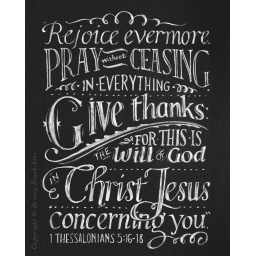 Rejoice evermore.
PRAY without CEASING
IN · EVERYTHING
Give thanks:
FOR · THIS · IS
THE Will of God
in Christ Jesus
concerning you."
1 THESSALONIANS 5:16-18